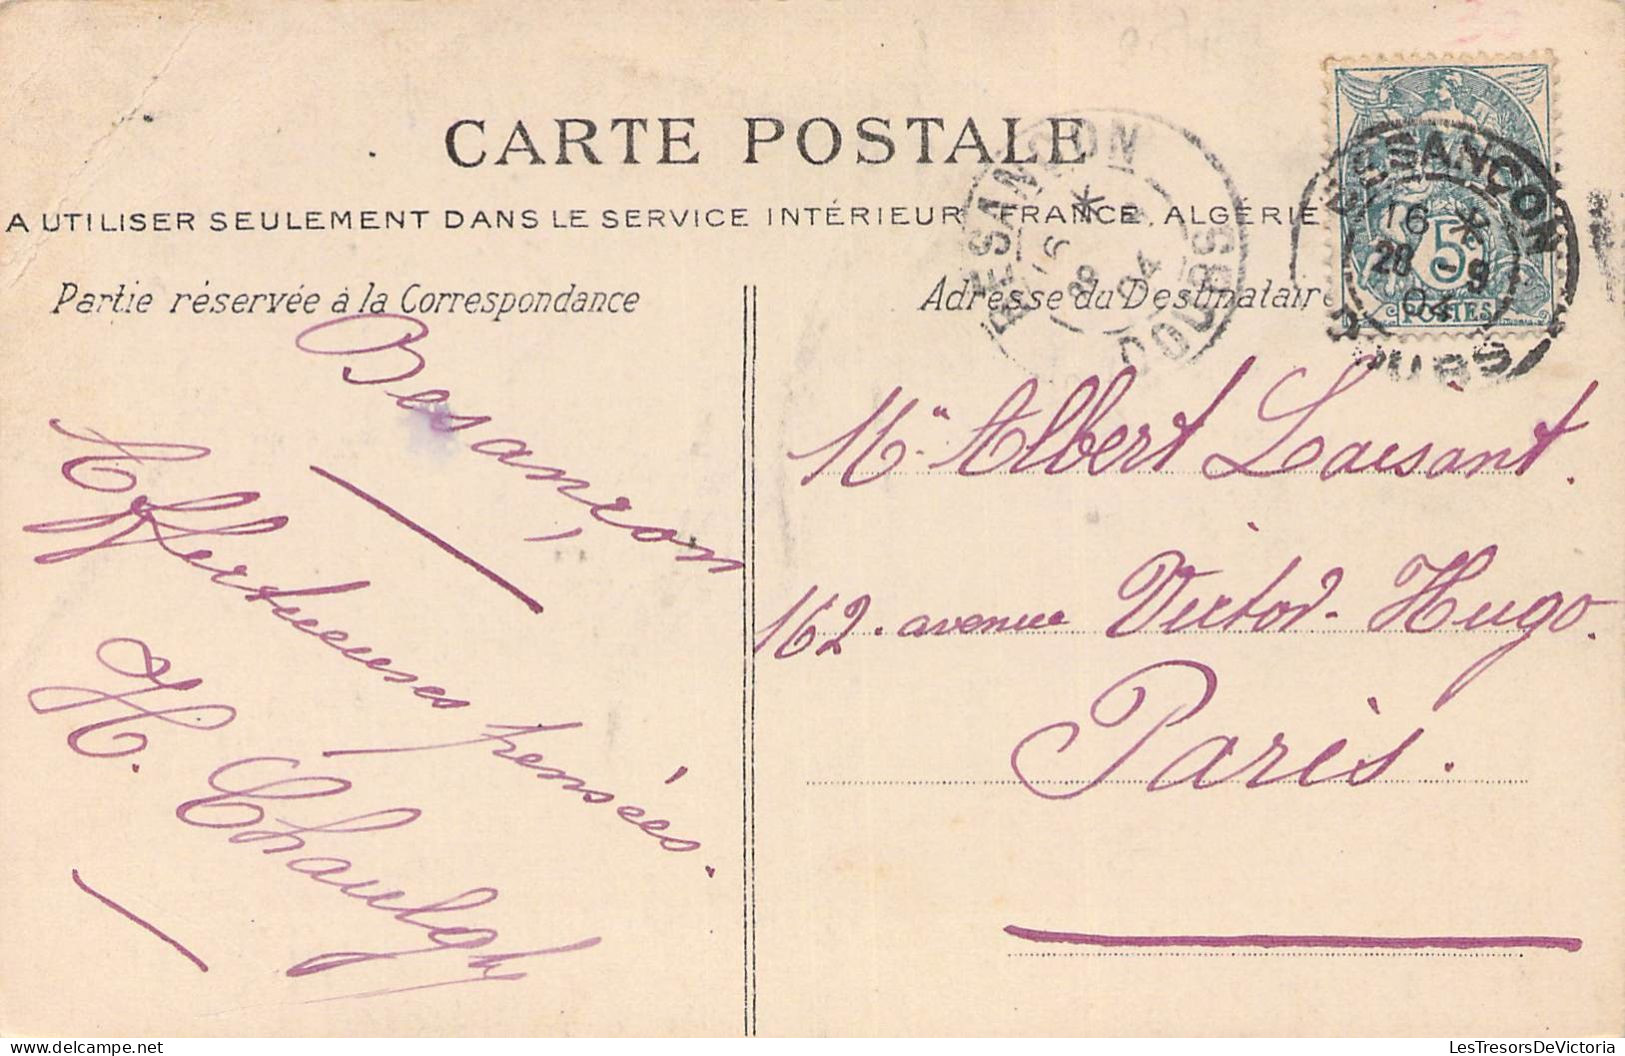 CARTE POSTALE
A UTILISER SEULEMENT DANS LE SERVICE INTÉRIEUR, FRANCE, ALGÉRIE
Partie réservée à la Correspondance
Adresse du Destinataire
BESANÇON
16 *
04
DOUBS
BESANÇON
16 *
28 - 9
04
DOUBS
5
POSTES
Besançon
Affectueuses pensées.
Mr. Albert Laisant.
162. avenue Victor-Hugo.
Paris.
LesTresorsDeVictoria